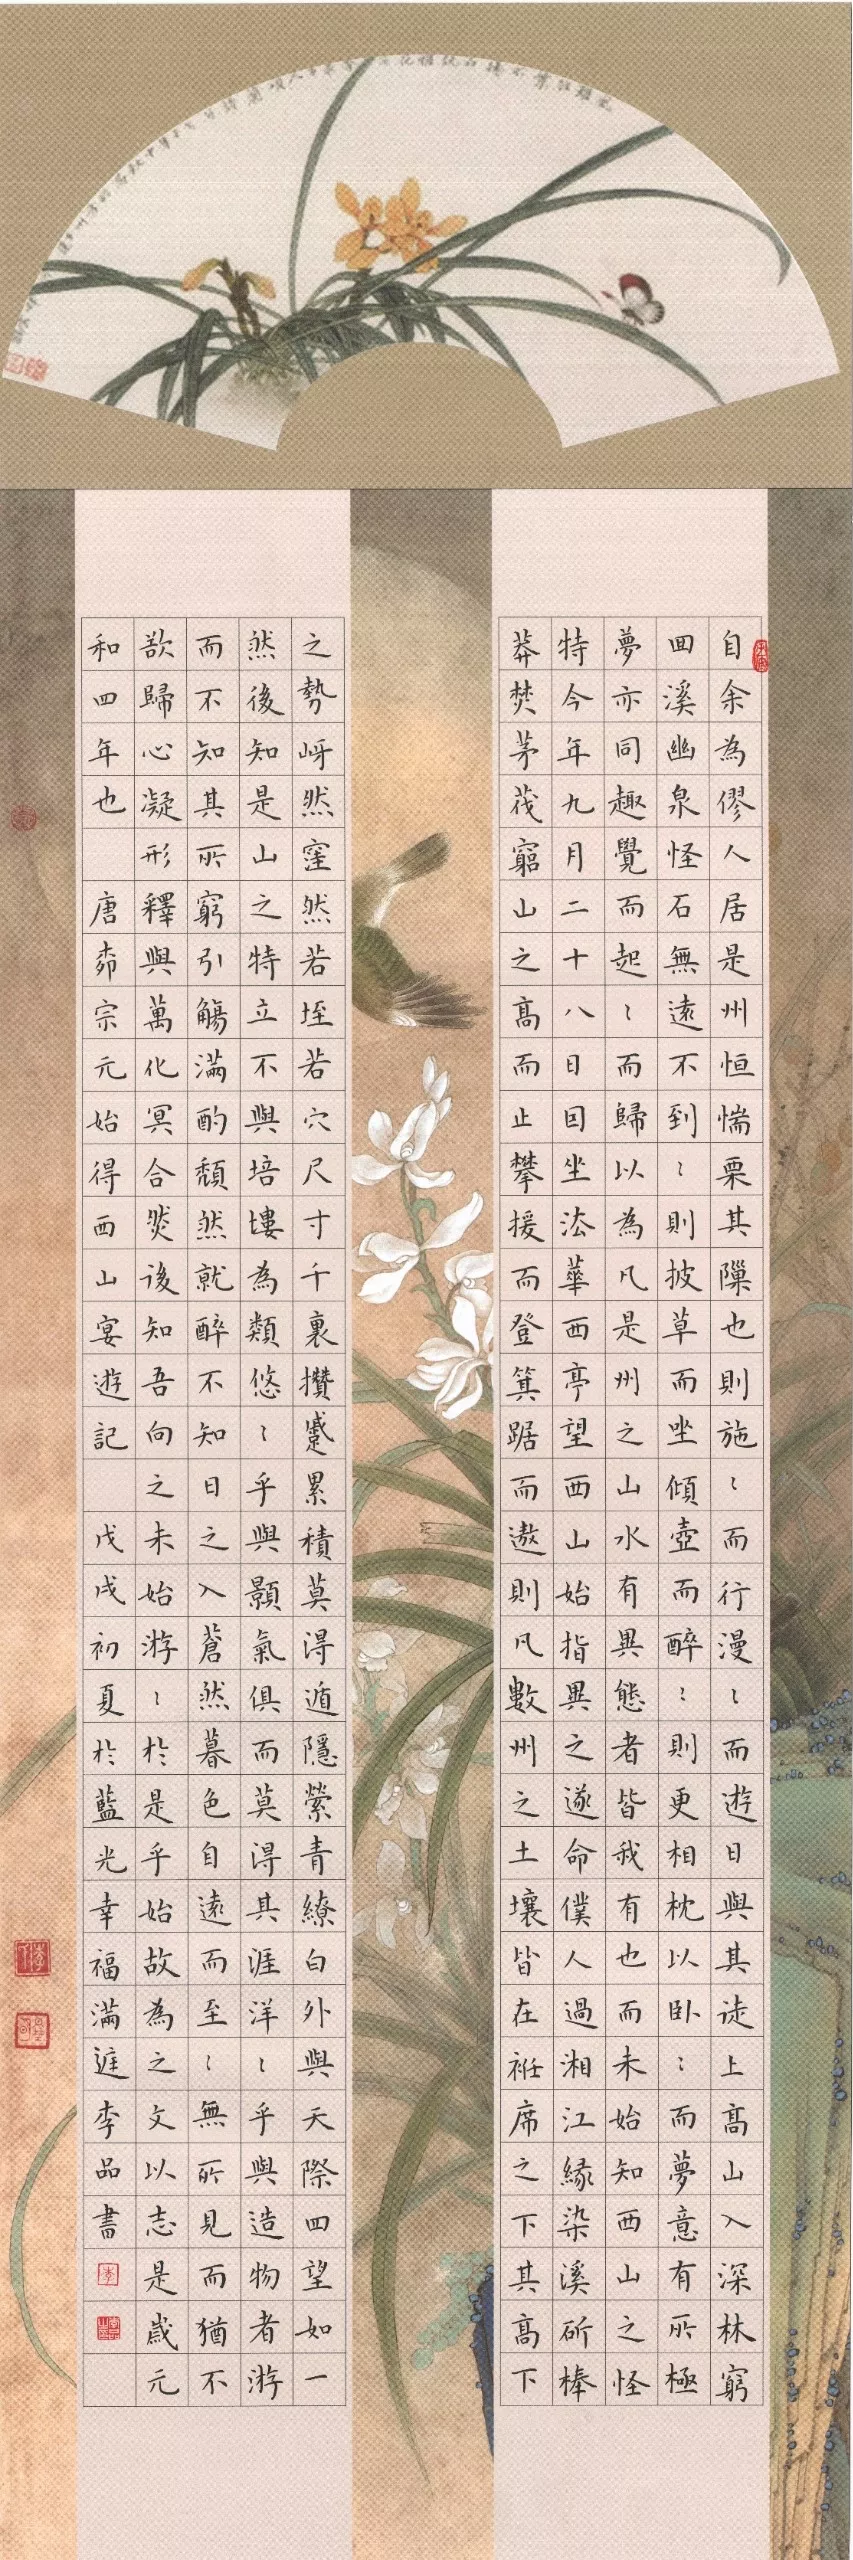 自余為僇人居是州恒惴栗其隟也則施〻而行漫〻而遊日與其徒上高山入深林窮
回溪幽泉怪石無遠不到〻則披草而坐傾壺而醉〻則更相枕以卧〻而夢意有所極
夢亦同趣覺而起〻而歸以為凡是州之山水有異態者皆我有也而未始知西山之怪
特今年九月二十八日因坐法華西亭望西山始指異之遂命僕人過湘江緣染溪斫榛
莽焚茅茷窮山之高而止攀援而登箕踞而遨則凡數州之土壤皆在衽席之下其高下
之勢岈然窪然若垤若穴尺寸千裏攢蹙累積莫得遁隱縈青繚白外與天際四望如一
然後知是山之特立不與培塿為類悠〻乎與顥氣俱而莫得其涯洋〻乎與造物者游
而不知其所窮引觴滿酌頹然就醉不知日之入蒼然暮色自遠而至〻無所見而猶不
欲歸心凝形釋與萬化冥合然後知吾向之未始游〻於是乎始故為之文以志是歲元
和四年也 唐柳宗元始得西山宴遊記 戊戌初夏於藍光幸福滿庭李品書